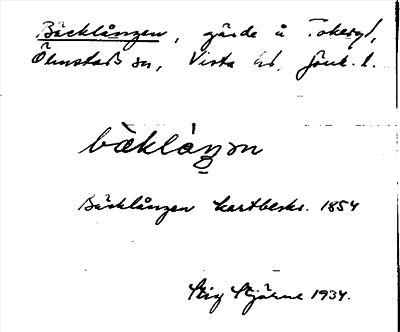 Bäcklången, gärde å Tokeryd,
Ölmstads sn, Vista hd, Jönk. l.
bäklåŋən
Bäcklången kartbeskr. 1854
Stig Stjärne 1934.